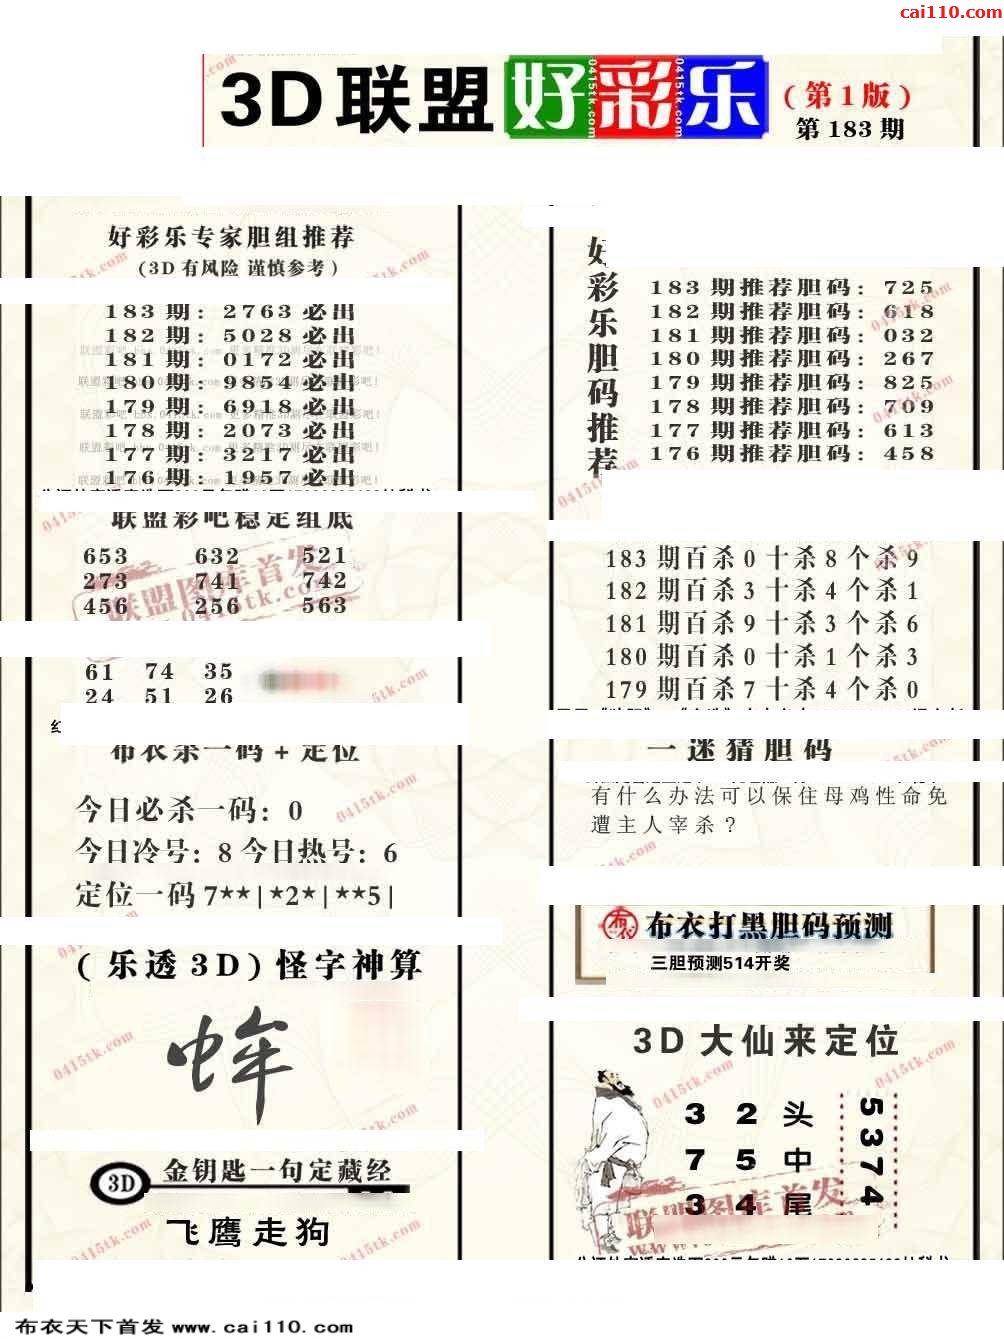 cai110.com
3D联盟好彩乐
(第1版)
第183期
好彩乐专家胆组推荐
(3D有风险 谨慎参考)
183期: 2763必出
182期: 5028必出
181期: 0172必出
180期: 9854必出
179期: 6918必出
178期: 2073必出
177期: 3217必出
176期: 1957必出
联盟彩吧稳定组底
653 632 521
273 741 742
456 256 563
61 74 35
24 51 26
布衣杀一码+定位
今日必杀一码: 0
今日冷号: 8 今日热号: 6
定位一码 7**|*2*|**5|
(乐透3D)怪字神算
金钥匙一句定藏经
3D
飞鹰走狗
好彩乐胆码推荐
183期推荐胆码: 725
182期推荐胆码: 618
181期推荐胆码: 032
180期推荐胆码: 267
179期推荐胆码: 825
178期推荐胆码: 709
177期推荐胆码: 613
176期推荐胆码: 458
183期百杀0十杀8个杀9
182期百杀3十杀4个杀1
181期百杀9十杀3个杀6
180期百杀0十杀1个杀3
179期百杀7十杀4个杀0
一迷猜胆码
有什么办法可以保住母鸡性命免
遭主人宰杀?
布衣
布衣打黑胆码预测
三胆预测514开奖
3D大仙来定位
3 2头
7 5中
3 4尾
5374
联盟图库首发
0415tk.com
布衣天下首发 www.cai110.com